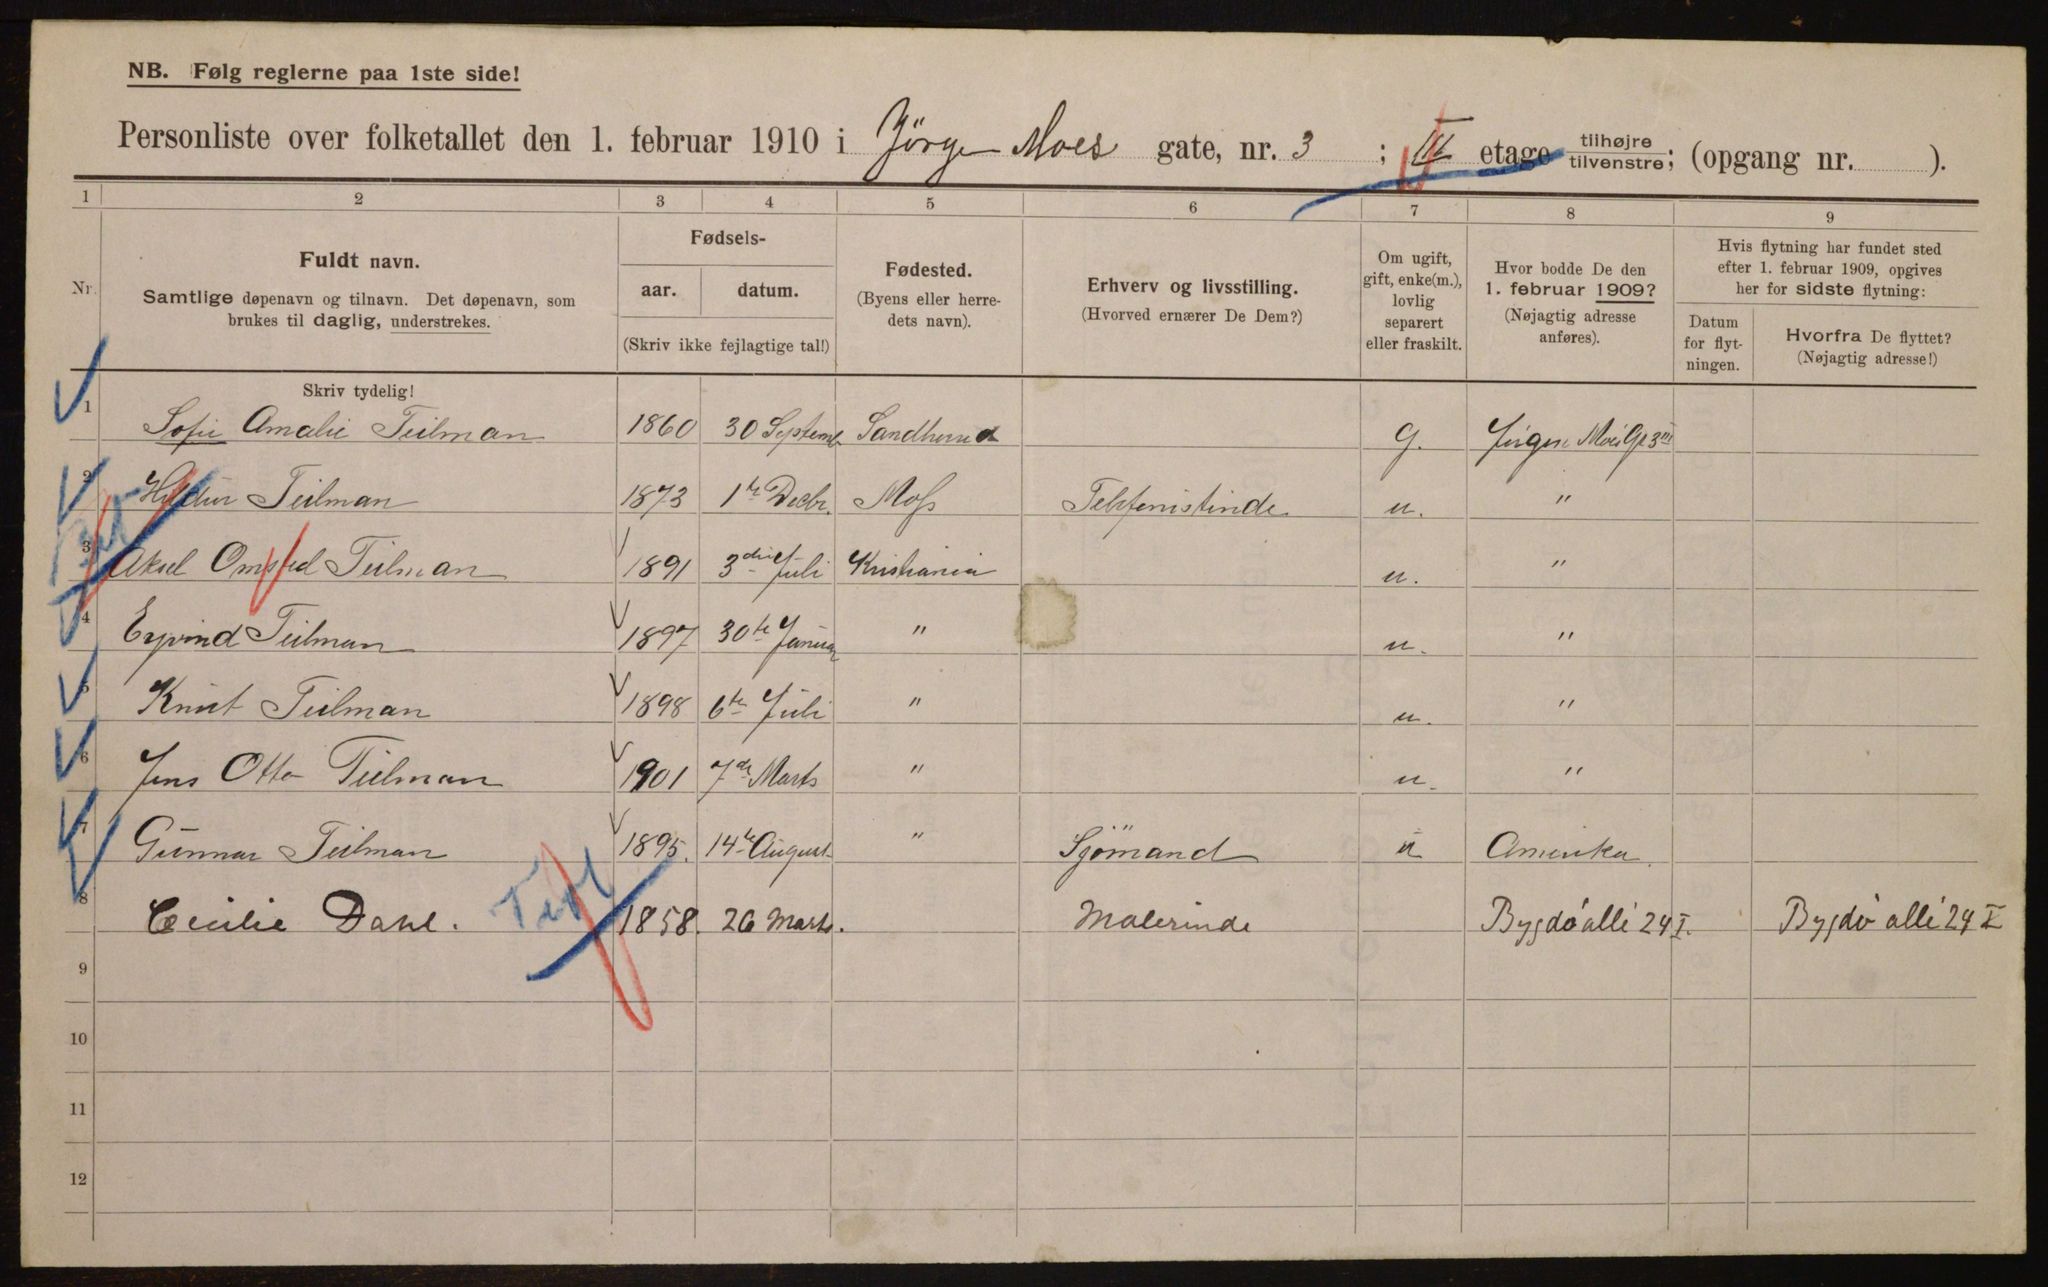 NB. Følg reglerne paa 1ste side!
Personliste over folketallet den 1. februar 1910 i Jörgen Moes gate, nr. 3 ; III etage tilhøjre tilvenstre; (opgang nr. ).
1 2 3 4 5 6 7 8 9
Nr. Fuldt navn. Samtlige døpenavn og tilnavn. Det døpenavn, som brukes til daglig, understrekes.
Fødsels- aar. datum. (Skriv ikke fejlagtige tal!)
Fødested. (Byens eller herredets navn).
Erhverv og livsstilling. (Hvorved ernærer De Dem?)
Om ugift, gift, enke(m.), lovlig separert eller fraskilt.
Hvor bodde De den 1. februar 1909? (Nøjagtig adresse anføres).
Hvis flytning har fundet sted efter 1. februar 1909, opgives her for sidste flytning:
Datum for flytningen.
Hvorfra De flyttet? (Nøjagtig adresse!)
Skriv tydelig!
1 Sofie Amalie Teilman 1860 30 Septemb Sandherred g. Jörgen Moes Gt 3 III
2 Hildur Teilman 1873 1te Decbr. Moss Telefonistinde u. "
3 Aksel Omsted Teilman 1891 3die Juli Kristiania u. "
4 Eyvind Teilman 1897 30te Januar " u. "
5 Knut Teilman 1898 6te Juli " u. "
6 Jens Otto Teilman 1901 7de Marts " u. "
7 Gunnar Teilman 1895. 14de August " Sjömand u Amerika.
8 Cecilie Dahl. 1858. 26 Marts. Malerinde Bygdö allé 24 I. Bygdö allé 24 I
9
10
11
12